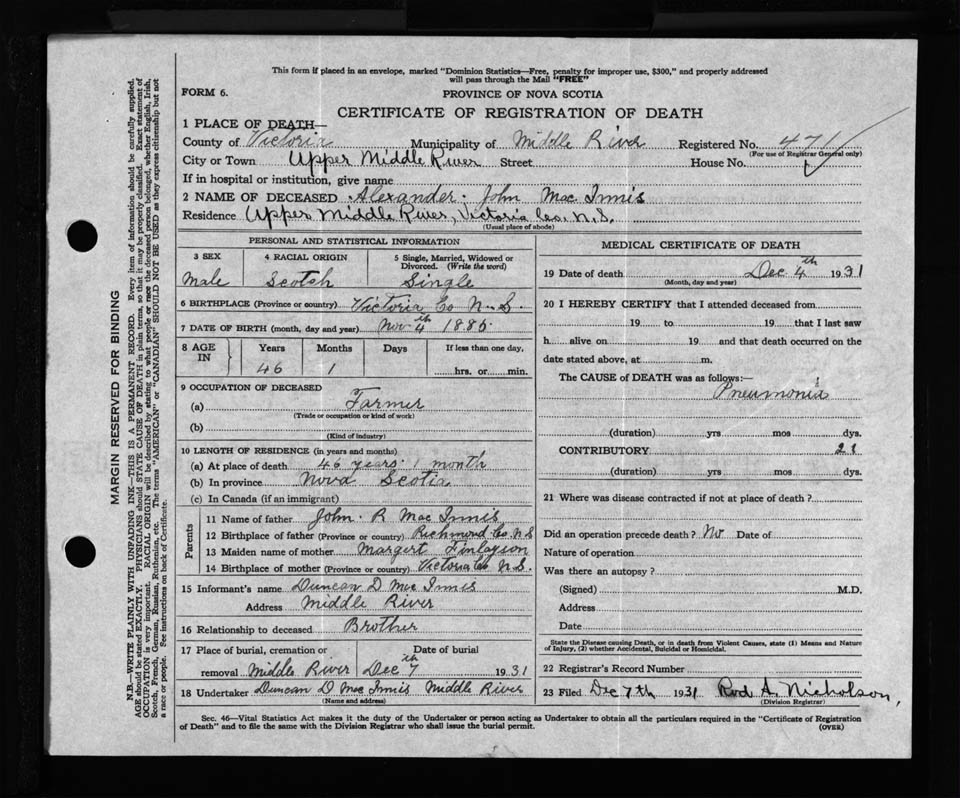 This form if placed in an envelope, marked "Dominion Statistics—Free, penalty for improper use, $300," and properly addressed
will pass through the Mail "FREE"
FORM 6.
PROVINCE OF NOVA SCOTIA
CERTIFICATE OF REGISTRATION OF DEATH
1 PLACE OF DEATH—
County of Victoria Municipality of Middle River Registered No. 471
(For use of Registrar General only)
City or Town Upper Middle River Street House No.
If in hospital or institution, give name
2 NAME OF DECEASED Alexander John Mac Innis
Residence Upper Middle River, Victoria Co. N.S.
(Usual place of abode)
PERSONAL AND STATISTICAL INFORMATION
3 SEX 4 RACIAL ORIGIN 5 Single, Married, Widowed or
Divorced. (Write the word)
Male Scotch Single
6 BIRTHPLACE (Province or country) Victoria Co N.S.
7 DATE OF BIRTH (month, day and year) Nov 4th 1885
8 AGE IN Years Months Days If less than one day,
46 1 hrs. or min.
9 OCCUPATION OF DECEASED
(a) Farmer
(Trade or occupation or kind of work)
(b)
(Kind of industry)
10 LENGTH OF RESIDENCE (in years and months)
(a) At place of death 46 years 1 month
(b) In province Nova Scotia
(c) In Canada (if an immigrant)
Parents
11 Name of father John R Mac Innis
12 Birthplace of father (Province or country) Richmond Co N S
13 Maiden name of mother Margert Finlayson
14 Birthplace of mother (Province or country) Victoria Co N.S.
15 Informant's name Duncan D Mac Innis
Address Middle River
16 Relationship to deceased Brother
17 Place of burial, cremation or Date of burial
removal Middle River Dec 7th 1931
18 Undertaker Duncan D Mac Innis Middle River
(Name and address)
MEDICAL CERTIFICATE OF DEATH
19 Date of death Dec 4th 1931
(Month, day and year)
20 I HEREBY CERTIFY that I attended deceased from
19 to 19 that I last saw
h alive on 19 and that death occurred on the
date stated above, at m.
The CAUSE of DEATH was as follows:—
Pneumonia
(duration) yrs mos dys.
CONTRIBUTORY 21
(duration) yrs mos dys.
21 Where was disease contracted if not at place of death?
Did an operation precede death? No Date of
Nature of operation
Was there an autopsy?
(Signed) M.D.
Address
Date
State the Disease causing Death, or in death from Violent Causes, state (1) Means and Nature
of Injury, (2) whether Accidental, Suicidal or Homicidal.
22 Registrar's Record Number
23 Filed Dec 7th 1931 Rod A. Nicholson,
(Division Registrar)
Sec. 46—Vital Statistics Act makes it the duty of the Undertaker or person acting as Undertaker to obtain all the particulars required in the "Certificate of Registration
of Death" and to file the same with the Division Registrar who shall issue the burial permit. (OVER)
MARGIN RESERVED FOR BINDING
N.B.—WRITE PLAINLY WITH UNFADING INK—THIS IS A PERMANENT RECORD. Every item of information should be carefully supplied.
AGE should be stated EXACTLY. PHYSICIANS should STATE CAUSE OF DEATH in plain terms, so that it may be properly classified. Exact statement of
OCCUPATION is very important. RACIAL ORIGIN will be described by stating to what people or race the deceased person belonged, whether English, Irish,
Scotch, French, German, Russian, Ruthenian, etc. The terms "AMERICAN" or "CANADIAN" SHOULD NOT BE USED as they express citizenship but not
a race or people. See instructions on back of Certificate.